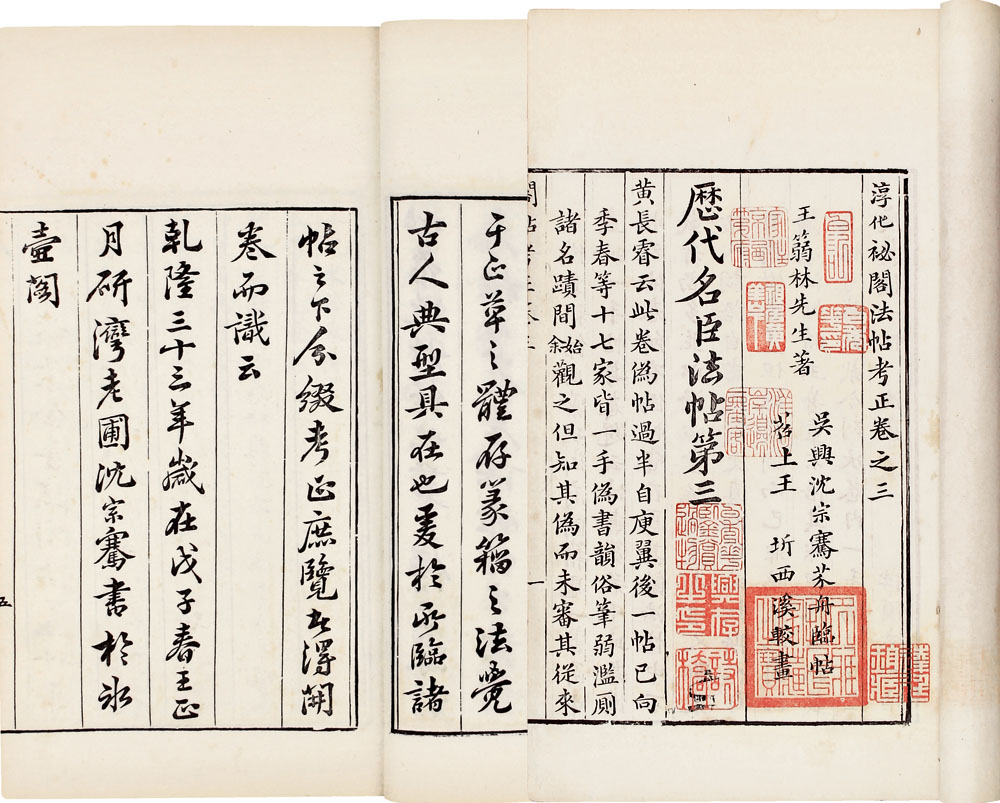 淳化祕閣法帖考正卷之三
王篛林先生著
吳興沈宗騫芥舟臨帖
苕上王　圻西溪較畫
歷代名臣法帖第三
黄長睿云此卷偽帖過半自庾翼後一帖已向
季春等十七家皆一手偽書韻俗筆弱濫厠
諸名蹟間始余觀之但知其偽而未審其從來
閣帖考正卷三
一
于正草之體存篆籀之法覺
古人典型具在也爰於所臨諸
帖之下分綴考正庶覽者得開
卷而識云
乾隆三十三年歲在戊子春王正
月研灣老圃沈宗騫書於冰
壺閣
五